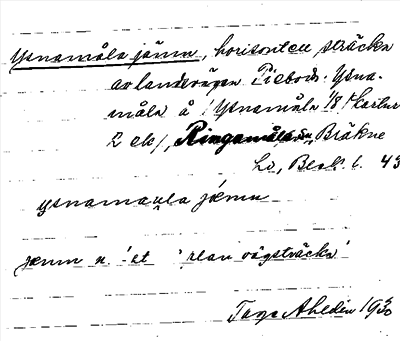 Ysnamåla jämn, horisontell sträcka
av landsvägen Piebods - Ysna-
måla å Ysnamåla 1/8 (kartur
2 ek), Ringamåla sn, Bräkne
hd, Blek. l. 43
ysnamaula jämn
jämn n. -et 'plan vägsträcka'
Tage Ahldén 1930